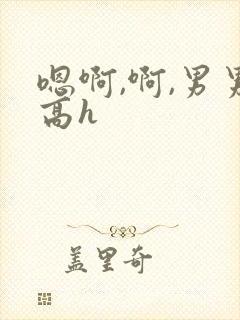 嗯啊,啊,男男
高h
盖里奇